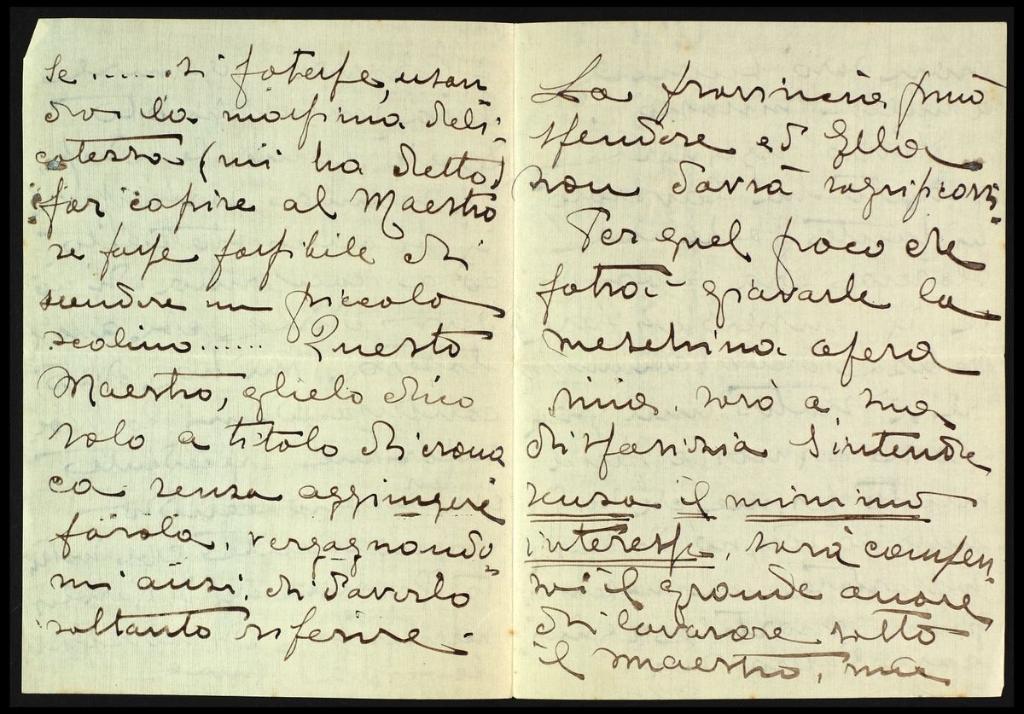 se ...... si potesse, usan
do la massima deli-
catezza (mi ha detto)
far capire al Maestro
se fosse possibile di
scendere un piccolo
scalino...... Questo
Maestro, glielo dico
solo a titolo di crona
ca senza aggiungere
parola, vergognando-
mi anzi, di doverlo
soltanto riferire.
La provincia può
spendere ed Ella
non dovrà sagrificarsi.
Per quel poco che
potrà giovarle la
meschina opera
mia, sarà a sua
disposizia s'intende
senza il minimo
interesse, sarà compen
so il grande onore
di lavorare sotto
il maestro, mio